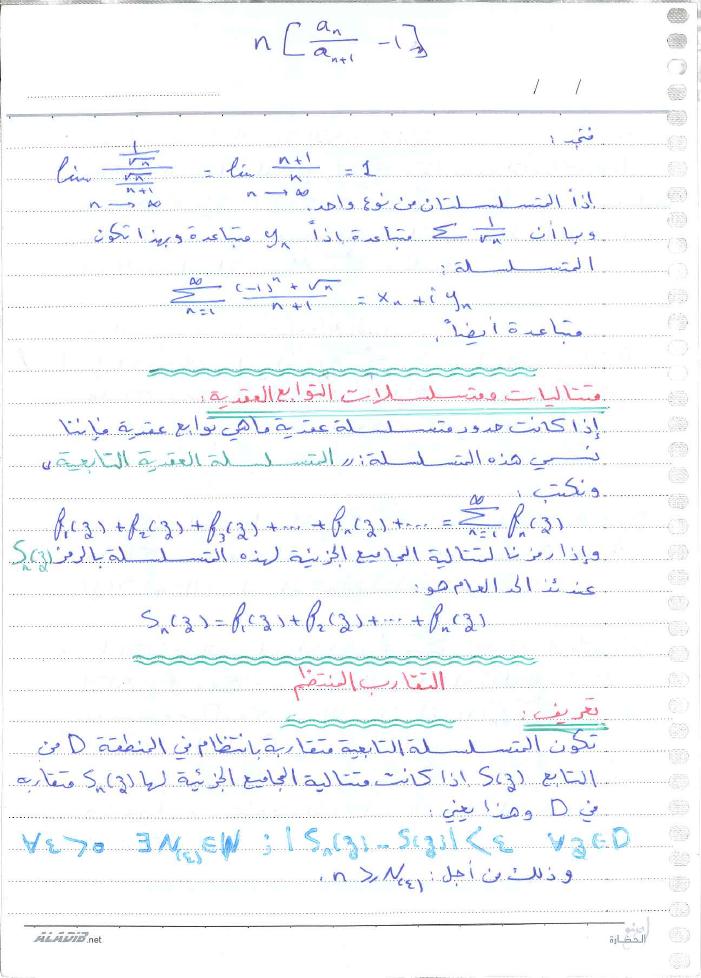 n [ a_n / a_{n+1} - 1 ]
/ /
فنجد :
lim_{n→∞} (1/√n) / (√n/(n+1)) = lim_{n→∞} (n+1)/n = 1
إذاً المتسلسلتان من نوع واحد.
وبما أن Σ 1/√n متباعدة إذاً y_n متباعدة وبهذا تكون
المتسلسلة :
Σ_{n=1}^{∞} ((-1)^n + √n)/(n+1) = x_n + i y_n
متباعدة أيضاً.
متتاليات ومتسلسلات التوابع العقدية :
إذا كانت حدود متسلسلة عقدية ما هي توابع عقدية فإننا
نسمي هذه المتسلسلة : " المتسلسلة العقدية التابعية "
ونكتب :
f₁(z) + f₂(z) + f₃(z) + ... + f_n(z) + ... = Σ_{n=1}^{∞} f_n(z)
وإذا رمزنا لمتتالية المجاميع الجزئية لهذه المتسلسلة بالرمز S_n(z)
عندئذ الحد العام هو :
S_n(z) = f₁(z) + f₂(z) + ... + f_n(z)
التقارب المنتظم
تعريف :
تكون المتسلسلة التابعية متقاربة بانتظام في المنطقة D من
التابع S(z) إذا كانت متتالية المجاميع الجزئية لها S_n(z) متقاربه
في D وهذا يعني :
∀ε > 0 ∃N(ε) ∈ N ; |S_n(z) - S(z)| < ε ∀z ∈ D
وذلك من أجل : n ≥ N(ε) .
ALADIB.net
الحضارة